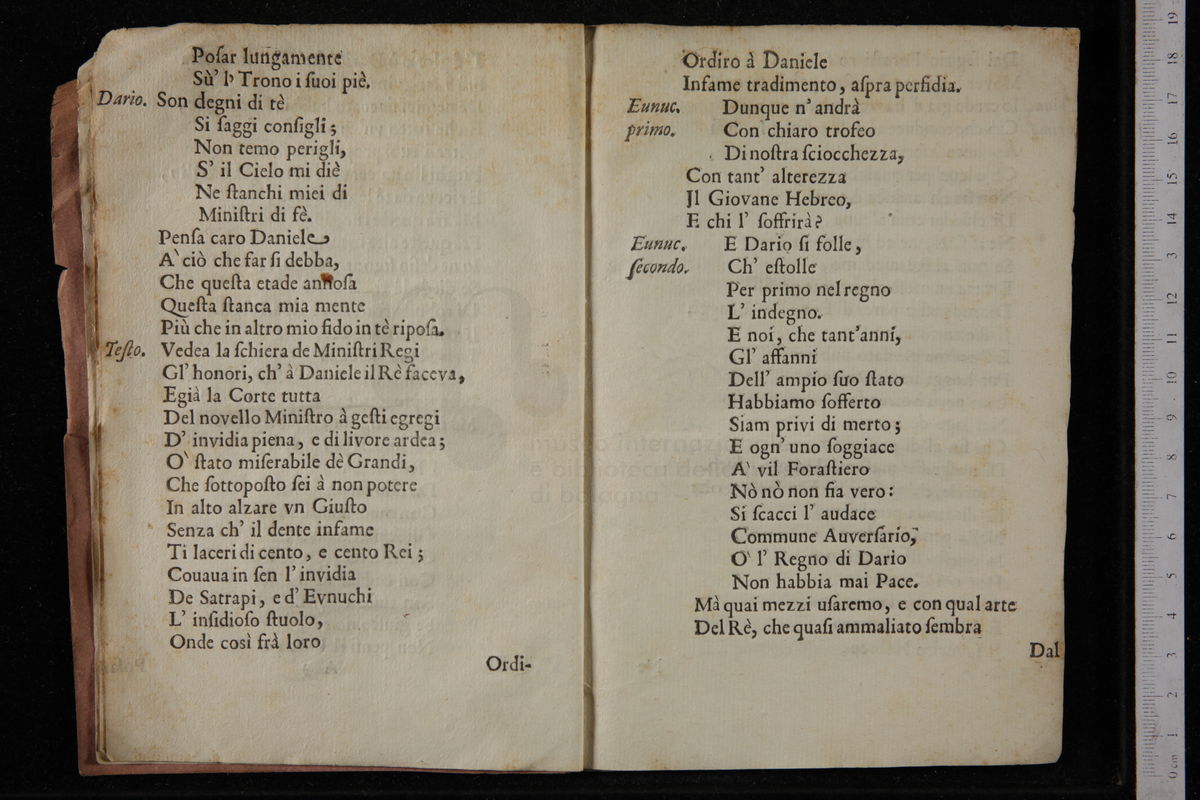 Poſar lungamente
Sù' l' Trono i ſuoi piè.
Dario. Son degni di tè
Si ſaggi conſigli;
Non temo perigli,
S' il Cielo mi diè
Ne ſtanchi miei di
Miniſtri di fè.
Penſa caro Daniele
A' ciò che far ſi debba,
Che queſta etade annoſa
Queſta ſtanca mia mente
Più che in altro mio fido in tè ripoſa.
Teſto. Vedea la ſchiera de Miniſtri Regi
Gl' honori, ch' à Daniele il Rè faceva,
E già la Corte tutta
Del novello Miniſtro à geſti egregi
D' invidia piena, e di livore ardea;
O' ſtato miſerabile dè Grandi,
Che ſottopoſto ſei à non potere
In alto alzare vn Giuſto
Senza ch' il dente infame
Ti laceri di cento, e cento Rei;
Couaua in ſen l' invidia
De Satrapi, e d' Evnuchi
L' inſidioſo ſtuolo,
Onde così frà loro
Ordi-
Ordiro à Daniele
Infame tradimento, aſpra perfidia.
Eunuc. Dunque n' andrà
primo. Con chiaro trofeo
Di noſtra ſciocchezza,
Con tant' alterezza
Il Giovane Hebreo,
E chi l' ſoffrirà?
Eunuc. E Dario ſi folle,
ſecondo. Ch' eſtolle
Per primo nel regno
L' indegno.
E noi, che tant' anni,
Gl' affanni
Dell' ampio ſuo ſtato
Habbiamo ſofferto
Siam privi di merto;
E ogn' uno ſoggiace
A' vil Foraſtiero
Nò nò non fia vero:
Si ſcacci l' audace
Commune Auverſario,
O' l' Regno di Dario
Non habbia mai Pace.
Mà quai mezzi uſaremo, e con qual arte
Del Rè, che quaſi ammaliato ſembra
Dal
museo internaz
e biblioteca de
di bologna